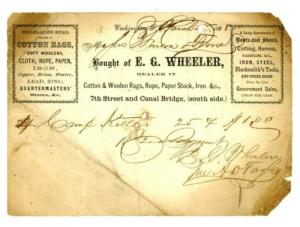 WHOLESALE AND RETAIL
COTTON RAGS,
SOFT WOOLENS,
CLOTH, ROPE, PAPER
IRON,
Copper, Brass, Pewter,
LEAD, ZINC,
QUARTERMASTERS'
Stores, &c.
Washington,
Bought of E. G. WHEELER,
DEALER IN
Cotton & Woolen Rags, Rope, Paper Stock, Iron &c.,
7th Street and Canal Bridge, (south side.)
A Large Assortment of
Boots and Shoes,
Clothing, Harness,
IRON, STEEL,
Blacksmith's Tools,
AND OTHER GOODS
From the Late
Government Sales,
CHEAP FOR CASH
4 Camp Kettles 25 4 $1.00
Rec Payment
E. G. Wheeler